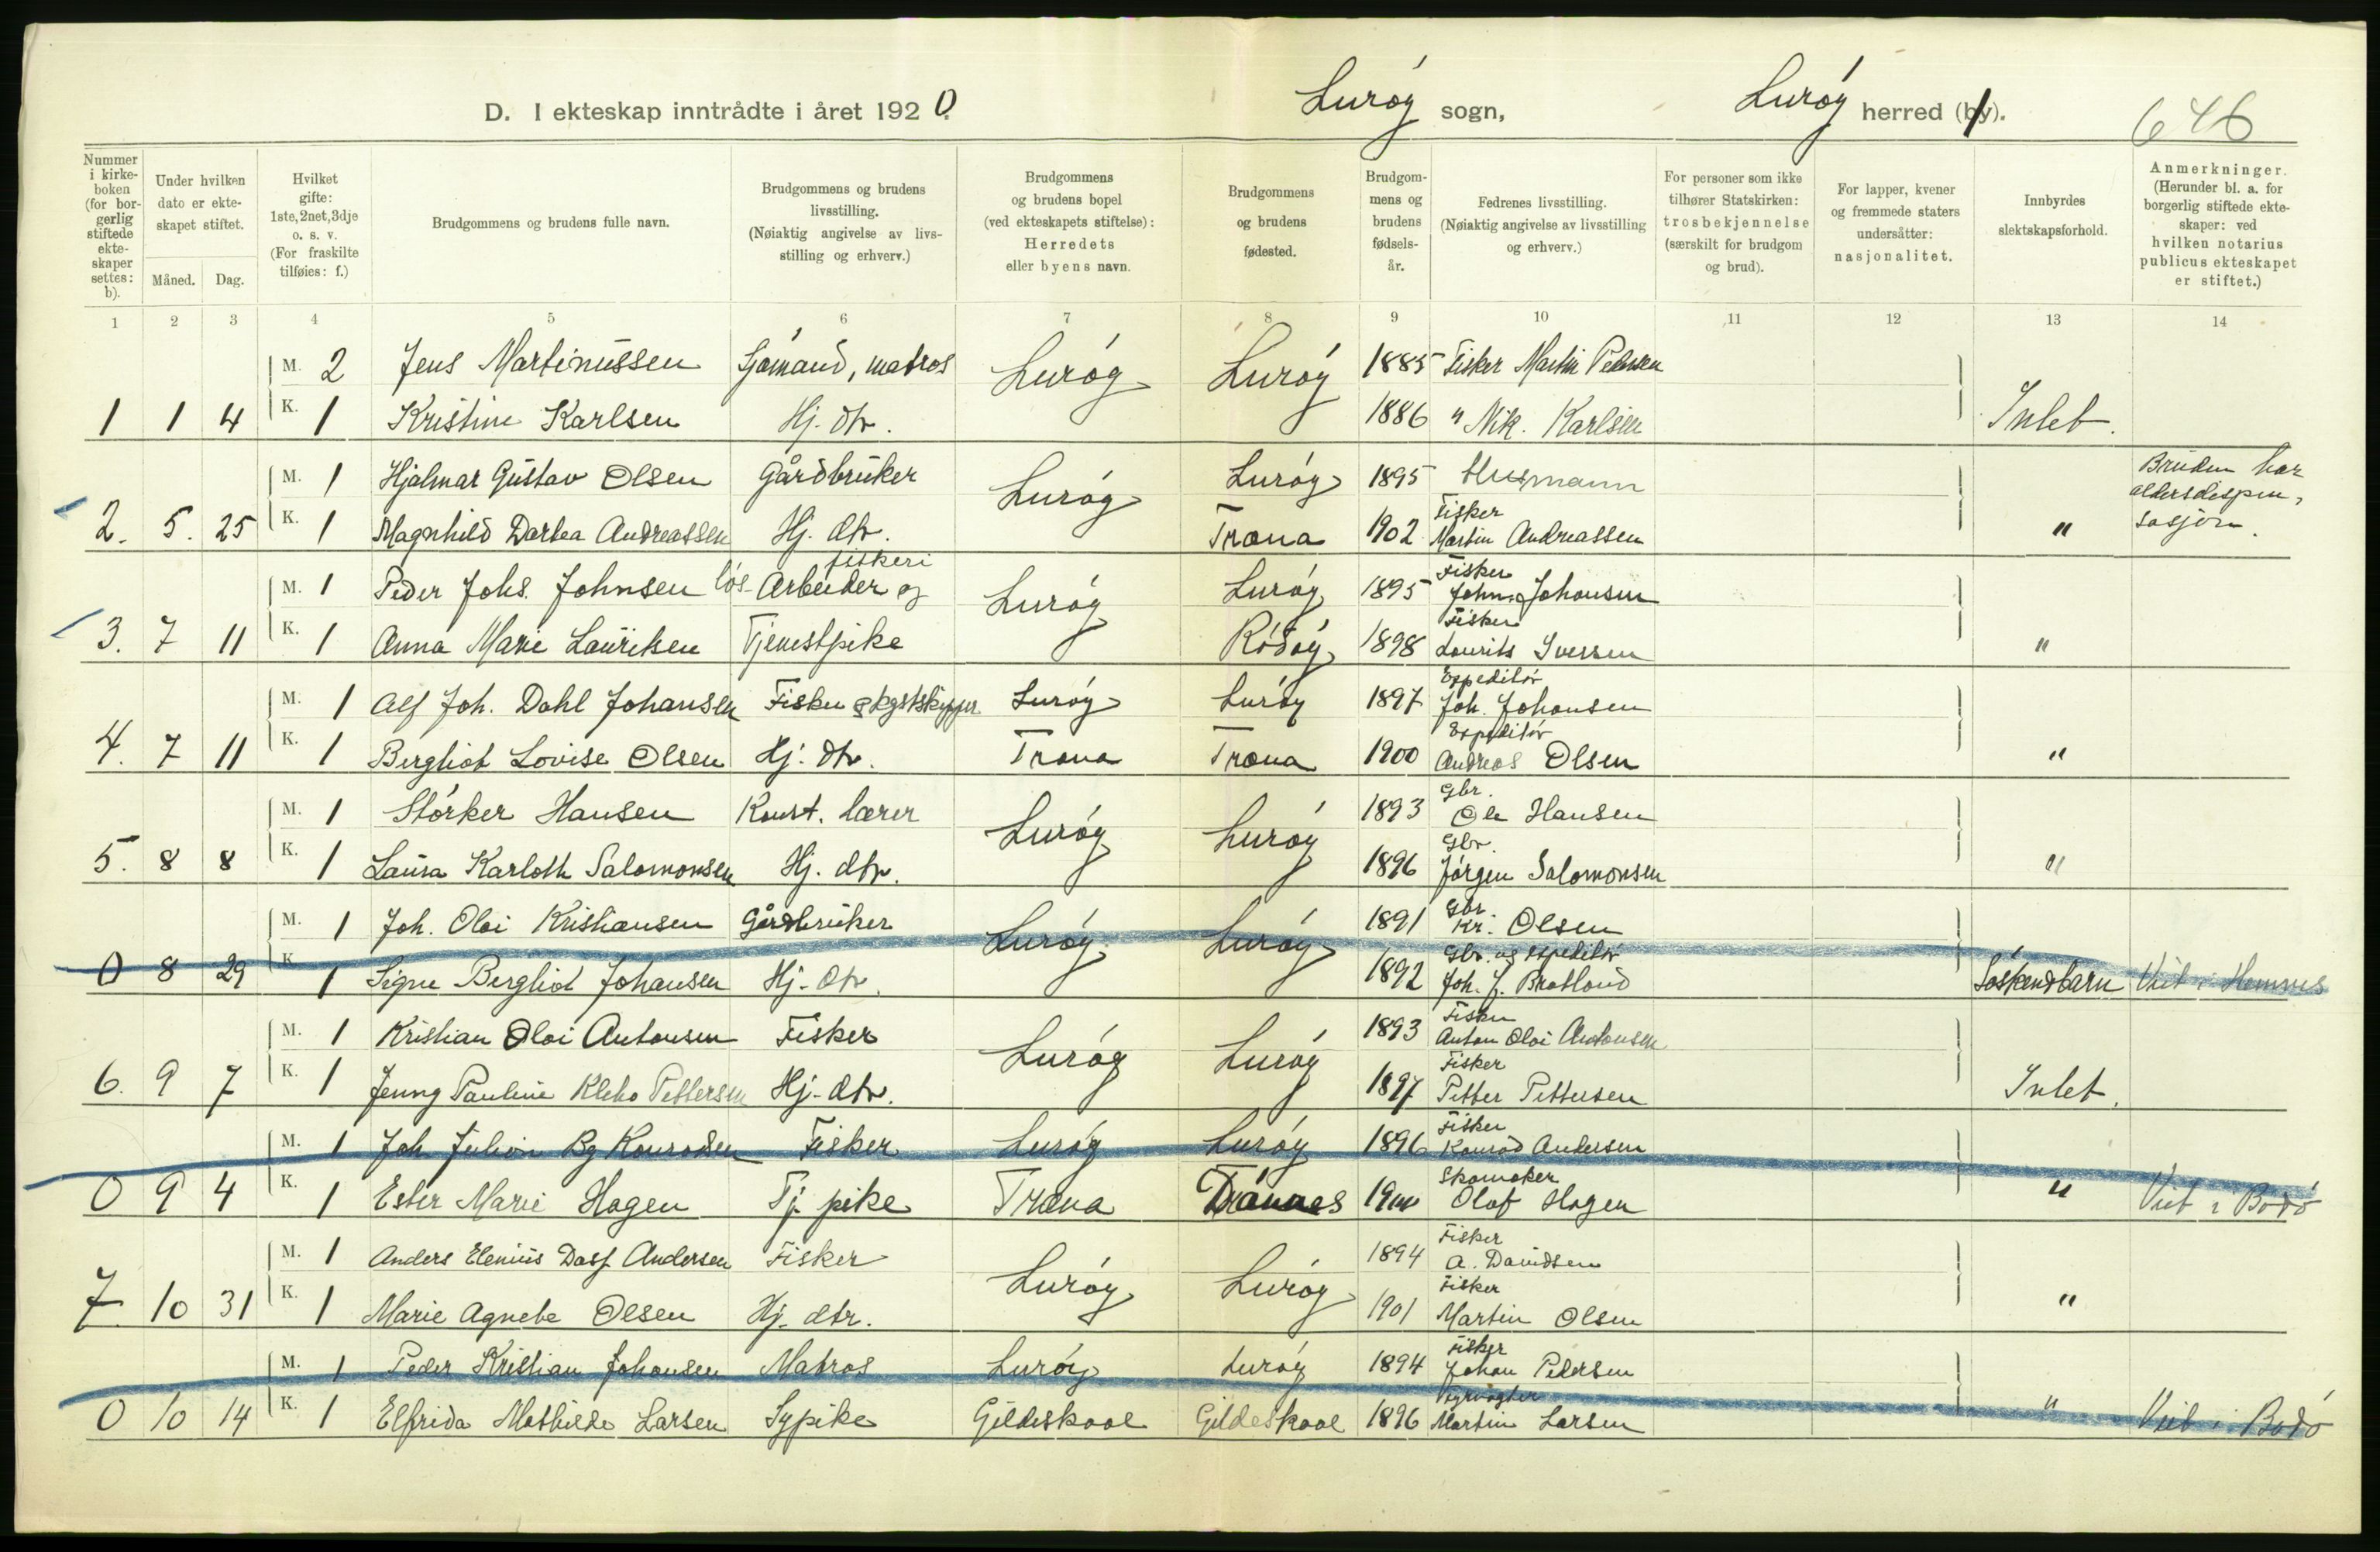 D. I ekteskap inntrådte i året 1920. Lurøy sogn, Lurøy herred (by). 646
Nummer i kirkeboken (for borgerlig stiftede ekteskaper settes: b).
Under hvilken dato er ekteskapet stiftet.
Måned. Dag.
Hvilket gifte: 1ste, 2net, 3dje o. s. v. (For fraskilte tilføies: f.)
Brudgommens og brudens fulle navn.
Brudgommens og brudens livsstilling. (Nøiaktig angivelse av livsstilling og erhverv.)
Brudgommens og brudens bopel (ved ekteskapets stiftelse): Herredets eller byens navn.
Brudgommens og brudens fødested.
Brudgommens og brudens fødselsår.
Fedrenes livsstilling. (Nøiaktig angivelse av livsstilling og erhverv.)
For personer som ikke tilhører Statskirken: trosbekjennelse (særskilt for brudgom og brud).
For lapper, kvener og fremmede staters undersåtter: nasjonalitet.
Innbyrdes slektskapsforhold.
Anmerkninger. (Herunder bl. a. for borgerlig stiftede ekteskaper: ved hvilken notarius publicus ekteskapet er stiftet.)
1 2 3 4 5 6 7 8 9 10 11 12 13 14
M. 2 Jens Martinussen Sjømand, matros Lurøy Lurøy 1885 Fisker Martin Pedersen
1 1 4 K. 1 Kristine Karlsen Hj. dtr. 1886 " Nik. Karlsen Intet.
M. 1 Hjalmar Gustav Olsen Gårdbruker Lurøy Lurøy 1895 Husmann Bruden har aldersdispensasjon.
2. 5. 25 K. 1 Magnhild Dortea Andreassen Hj. dtr. Træna 1902 Fisker Martin Andreassen "
M. 1 Peder Johs. Johnsen løs-Arbeider og fiskeri Lurøy Lurøy 1895 Fisker John Johansen
3. 7 11 K. 1 Anna Marie Lauritsen Tjenestpike Rødøy 1898 Fisker Laurits Iversen "
M. 1 Alf Joh. Dahl Johansen Fisker og kystskipper Lurøy Lurøy 1897 Expeditør Joh. Johansen
4. 7 11 K. 1 Bergliot Lovise Olsen Hj. dtr. Træna Træna 1900 Expeditør Andreas Olsen "
M. 1 Størker Hansen Konst. lærer Lurøy Lurøy 1893 Gbr. Ole Hansen
5. 8 8 K. 1 Laura Karloth Salomonsen Hj. dtr. 1896 Gbr. Jørgen Salomonsen "
M. 1 Joh. Olai Kristiansen Gårdbruker Lurøy Lurøy 1891 Gbr. Kr. Olsen
0 8 29 K. 1 Signe Bergliot Johansen Hj. dtr. 1892 Gbr. og expeditør Joh. J. Bratland Søskendbarn Viet i Hemnes
M. 1 Kristian Olai Antonsen Fisker Lurøy Lurøy 1893 Fisker Anton Olai Antonsen
6. 9 7 K. 1 Jenny Pauline Pettersen Hj. dtr. 1897 Fisker Petter Pettersen Intet.
M. 1 Joh Julian Konradsen Fisker Lurøy Lurøy 1896 Fisker Konrad Andersen
0 9 4 K. 1 Ester Marie Hagen Tj. pike Træna Tranes Skomaker Olaf Hagen " Viet i Bodø
M. 1 Anders Elenius Andersen Fisker Lurøy Lurøy 1894 Fisker A. Davidsen
7 10 31 K. 1 Marie Agnete Olsen Hj. dtr. 1901 Fisker Martin Olsen "
M. 1 Peder Kristian Johansen Matros Lurøy Lurøy 1894 Fisker Johan Pedersen
0 10 14 K. 1 Elfrida Mathilde Larsen Sypike Gildeskaal Gildeskaal 1896 Fyrvogter Martin Larsen " Viet i Bodø